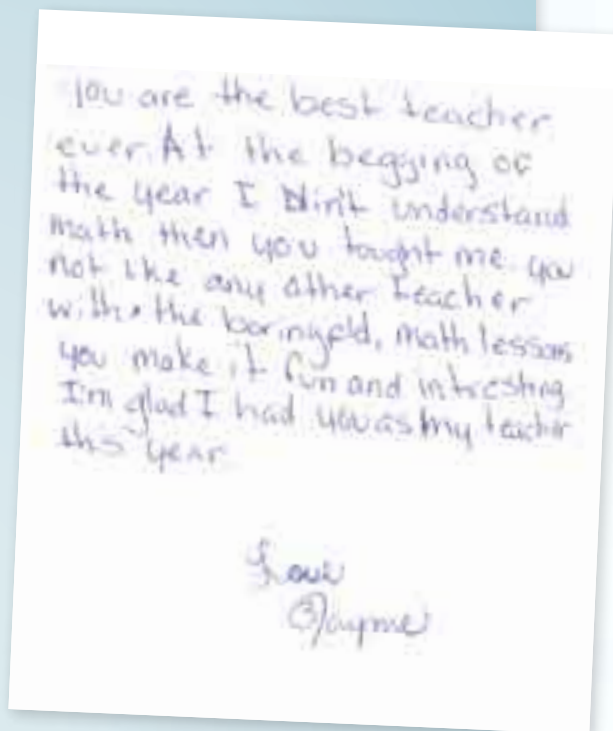 You are the best teacher
ever. At the begging of
the year I din't understand
math then you tought me. you
not like any other teacher
with the boring old, math lessons
you make it fun and intresting
I'm glad I had you as my teacher
this year
Love
Jayme